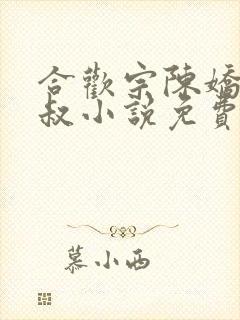 合歡宗陳嬌
叔小說免費
慕小西